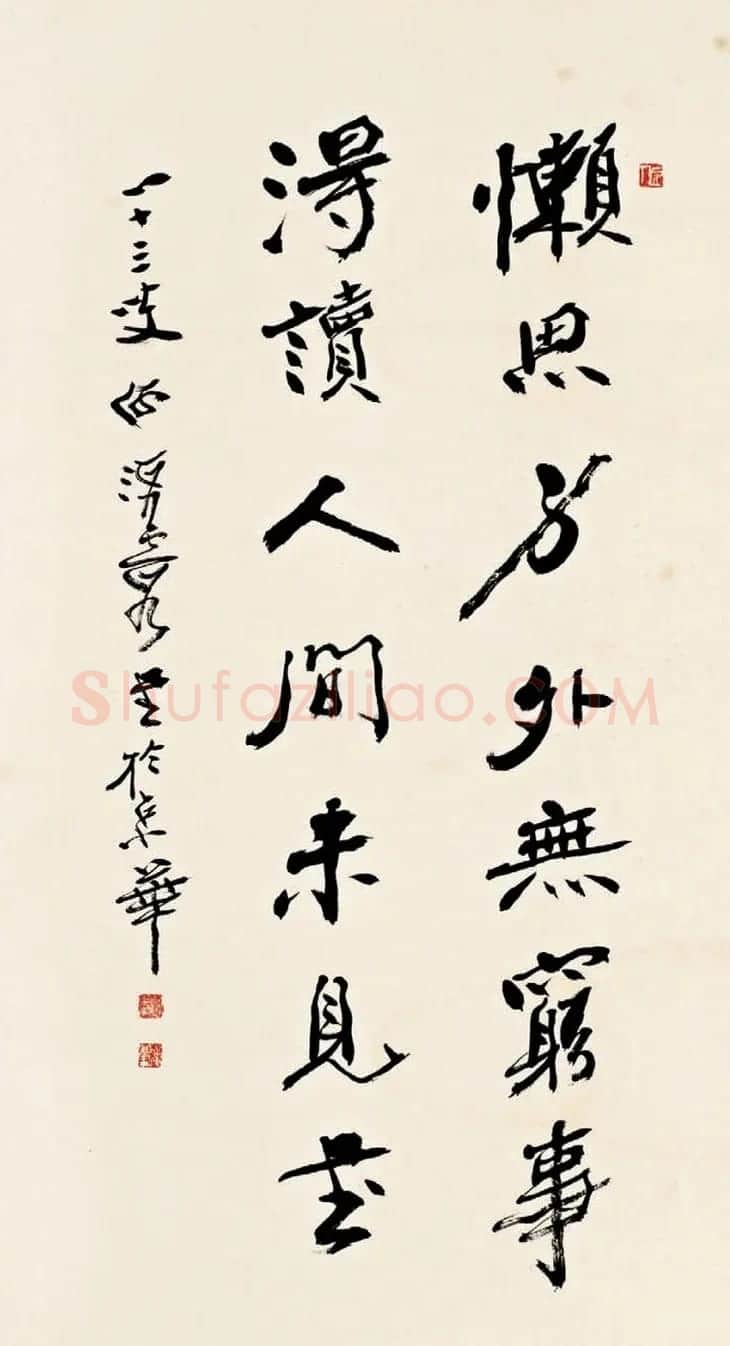 懶思方外無窮事
得讀人間未見書
十三叟 書於京華
Shufaziliao.COM